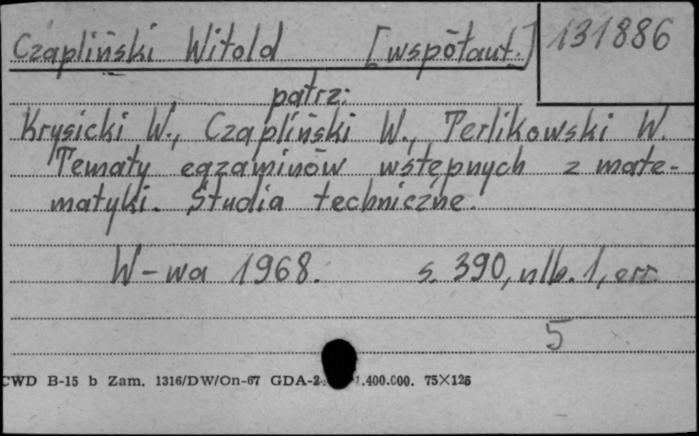 Czapliński Witold [współaut.] 131886
patrz:
Krysicki W., Czapliński W., Perlikowski W.
Tematy egzaminów wstępnych z mate-
matyki. Studia techniczne.
W-wa 1968. s. 390, nlb. 1, err.
5
CWD B-15 b Zam. 1316/DW/On-67 GDA-2 1.400.000. 75×125